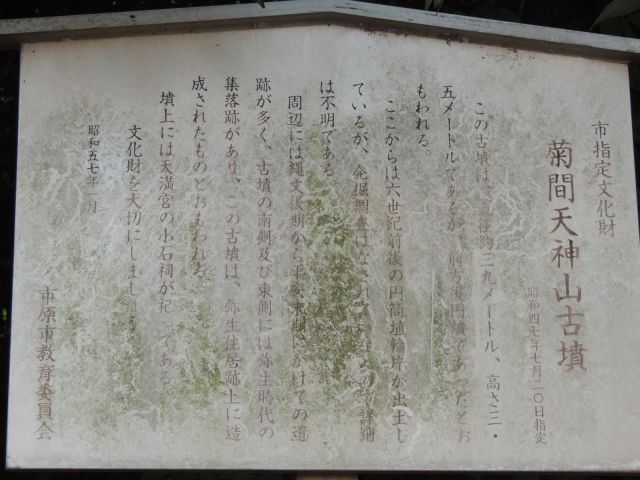 市指定文化財
菊間天神山古墳
昭和四七年七月二〇日指定
この古墳は、直径約三九メートル、高さ三・
五メートルであるが 前方後円墳であったとお
もわれる。
ここからは六世紀前後の円筒埴輪片が出土し
ているが、発掘調査はなされて ので詳細
は不明である
周辺には縄文後期から平安末期にかけての遺
跡が多く、古墳の南側及び東側には弥生時代の
集落跡があり、この古墳は、弥生住居跡上に造
成されたものとおもわれる。
墳上には天満宮の小石祠が祀 てある。
文化財を大切にしまし
昭和五七年 月
市原市教育委員会